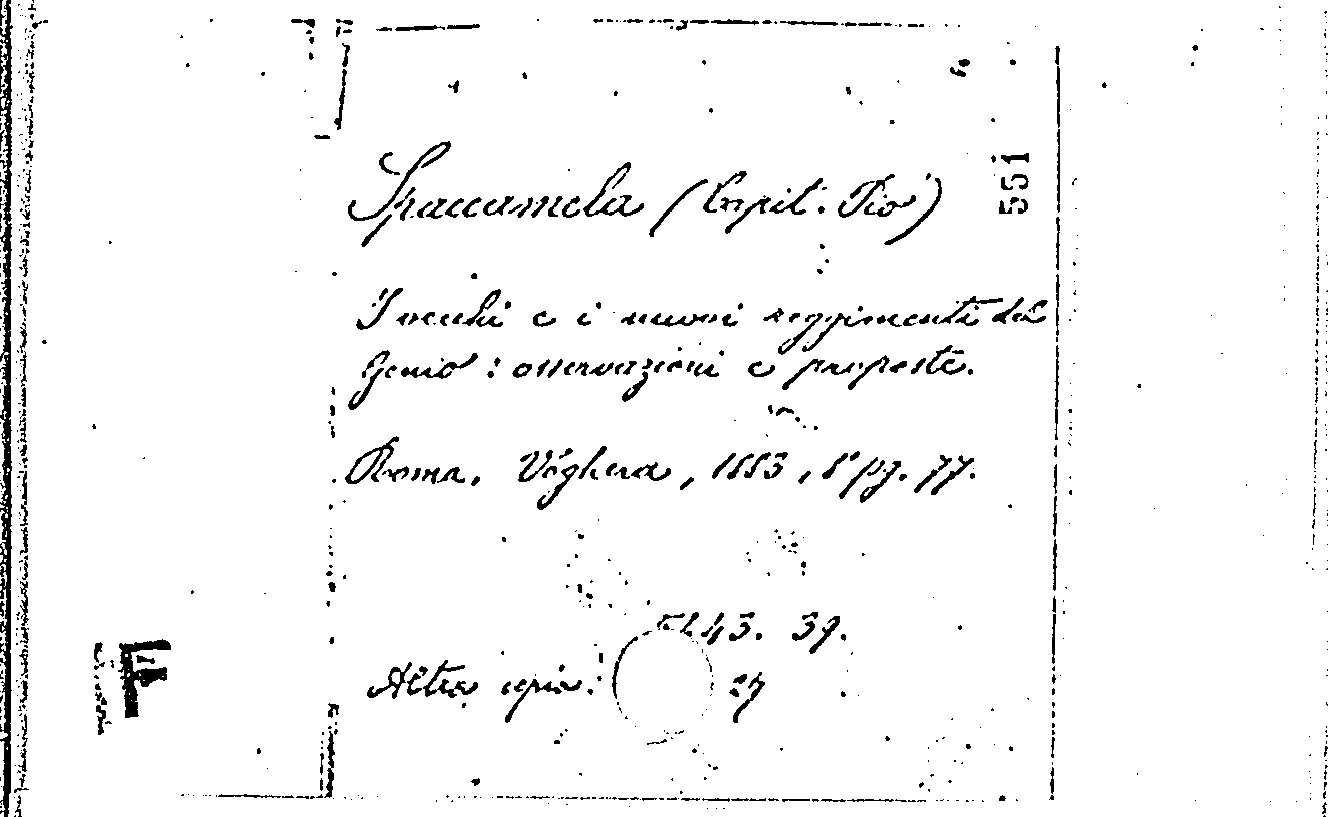 551
Spaccamela (Capit. Pio)
I vecchi e i nuovi reggimenti del
Genio: osservazioni e proposte.
Roma, Voghera, 1883, 8° pg. 77.
43. 39.
Altra copia: